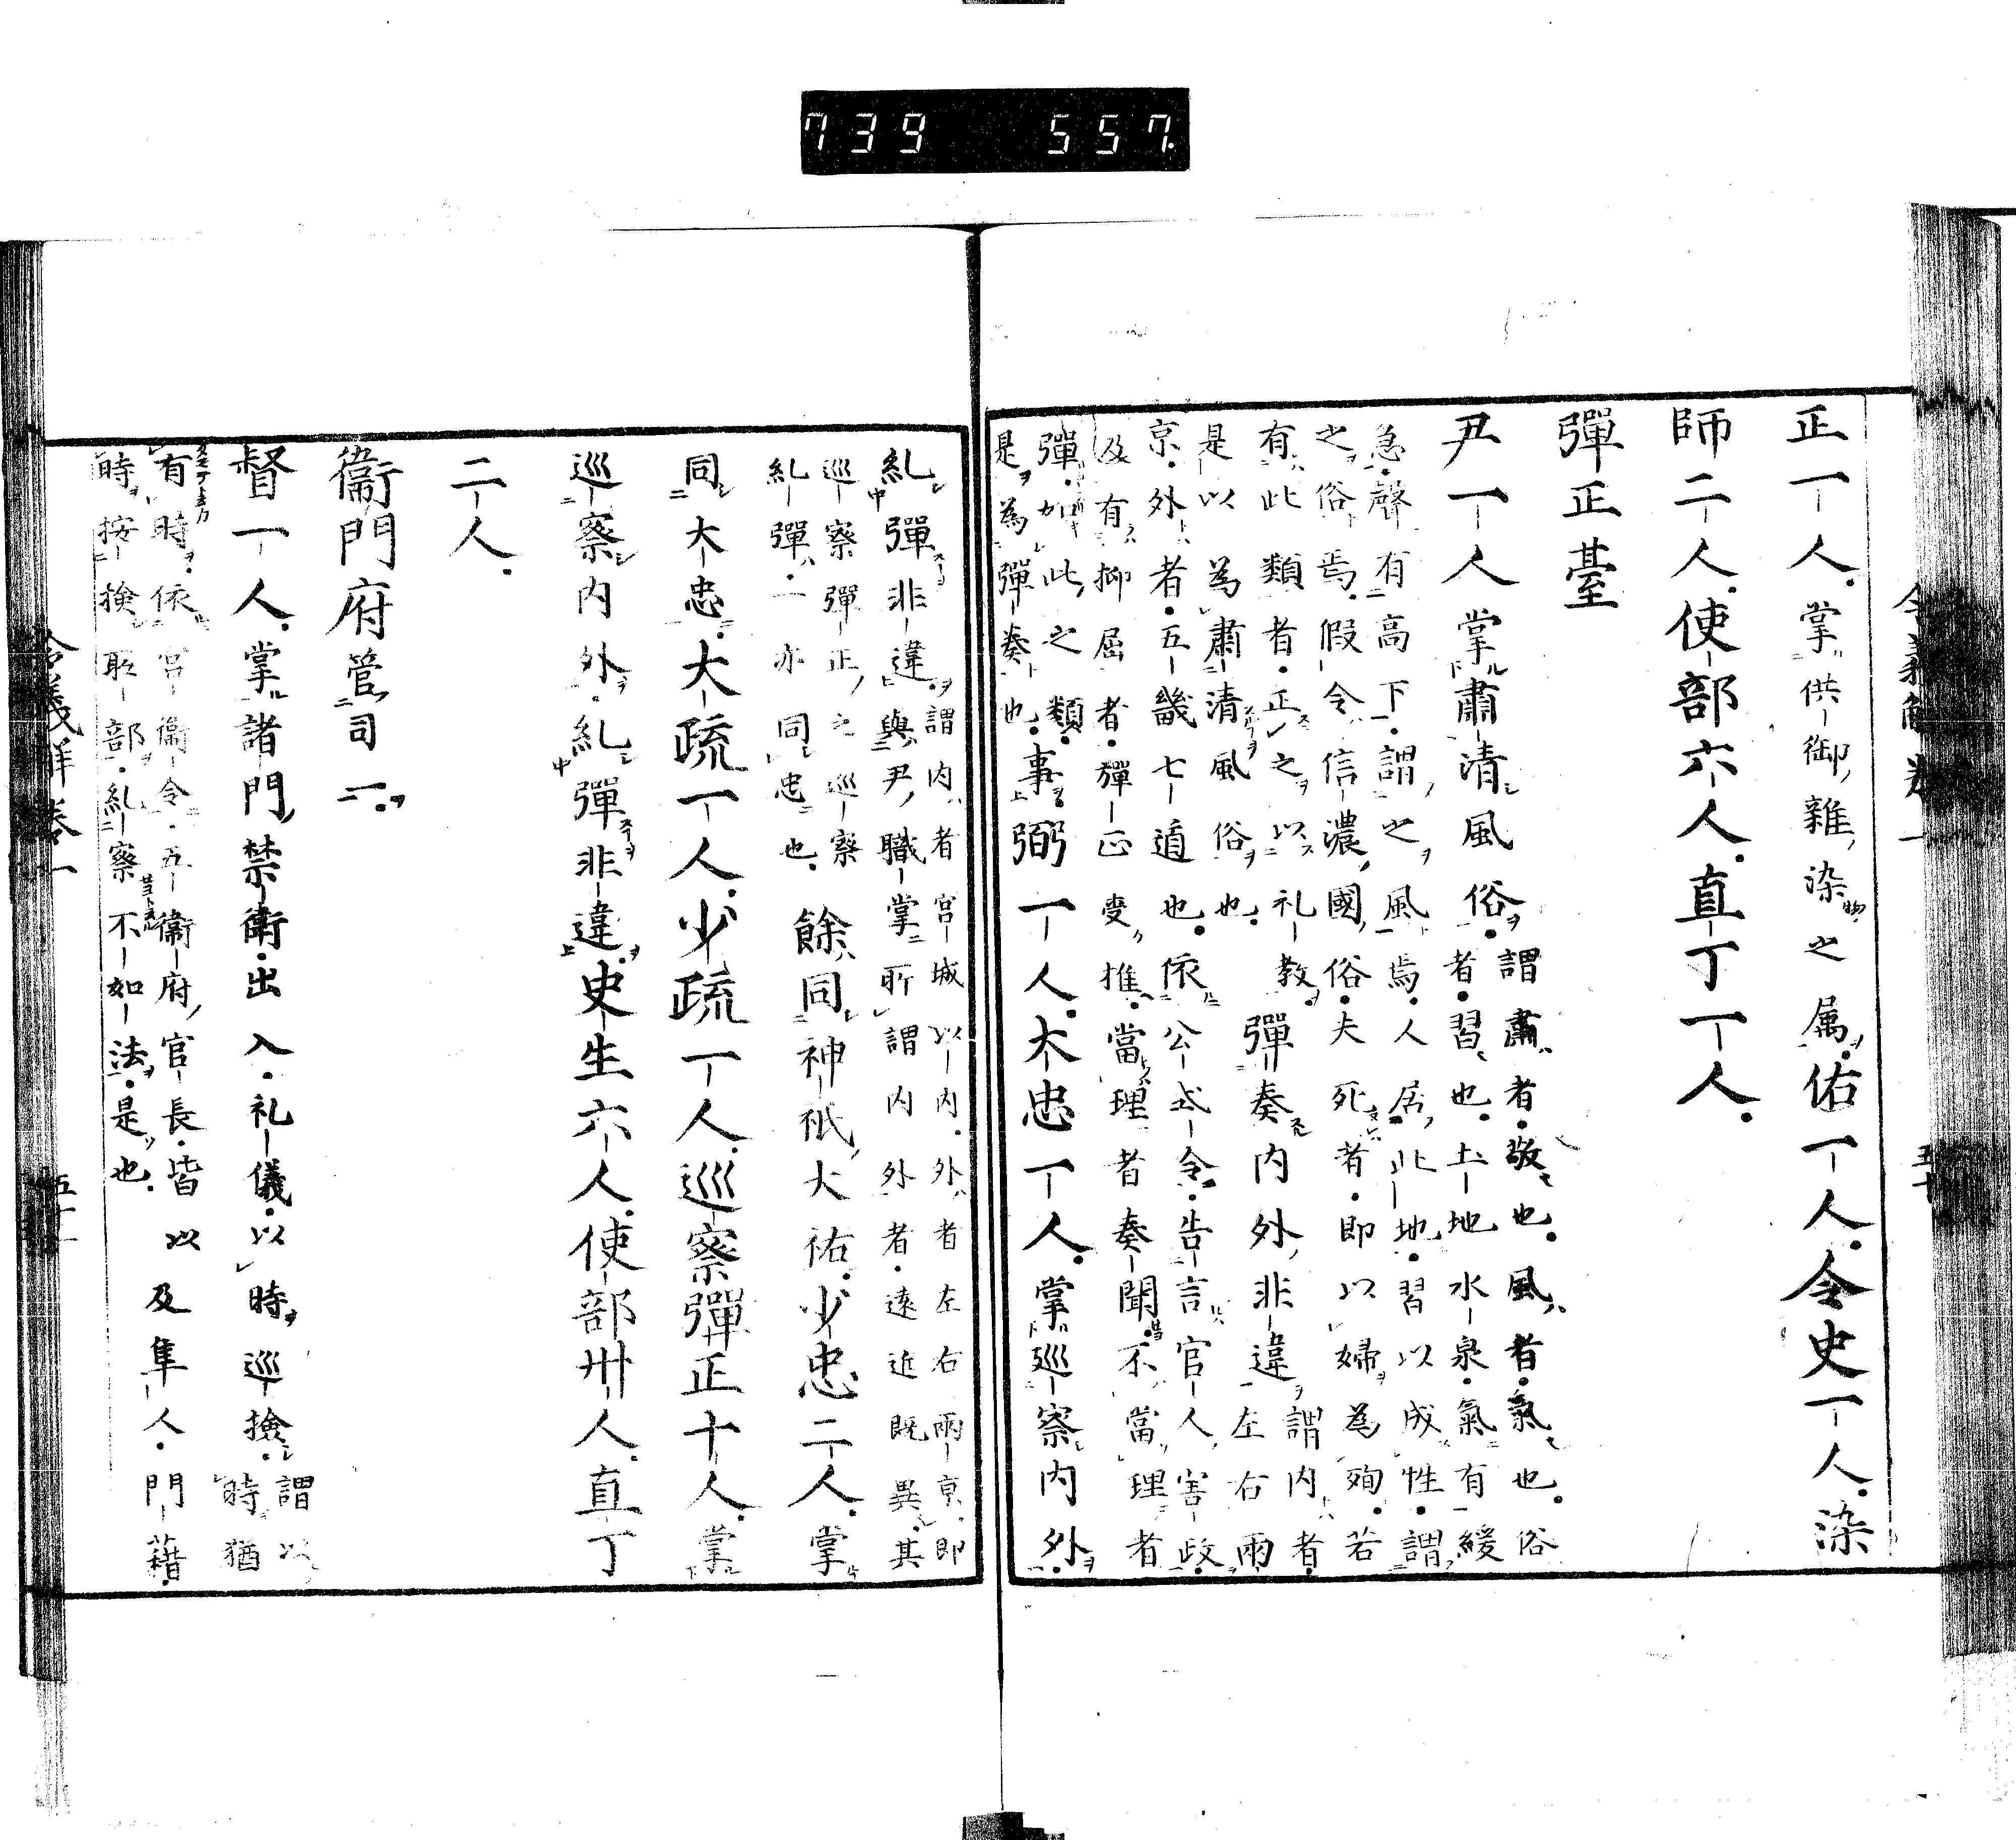 739 557
正一人掌供御雜染之属佑一人令史一人染
師二人使部六人直丁一人
彈正臺
尹一人掌肅清風俗謂肅者敬也風者氣也俗
者習也土地水泉氣有緩
急聲有高下謂之風焉人居此地習以成性謂
之俗焉假令信濃國俗夫死者即以婦為殉若
有此類者正之以礼教
是以為肅清風俗也
彈奏内外非違謂内者
左右兩
京外者五畿七道也依公式令告言官人害政
及有抑屈者彈正受推當理者奏聞不當理者
彈如此之類
是為彈奏也
事弼一人大忠一人掌巡察内外
糺彈非違謂内者宮城以内外者左右兩京即
與尹職掌所謂内外者遠近既異其
巡察彈正之巡察
糺彈亦同忠也
餘同神祇大祐少忠二人掌
同大忠大疏一人少疏一人巡察彈正十人掌
巡察内外糺彈非違史生六人使部卅人直丁
二人
衞門府管司二
督一人掌諸門禁衛出入礼儀以時巡撿謂以
時猶
有時依宮衞令五衞府官長皆以
時按撿所部糺察不如法是也
及隼人門藉